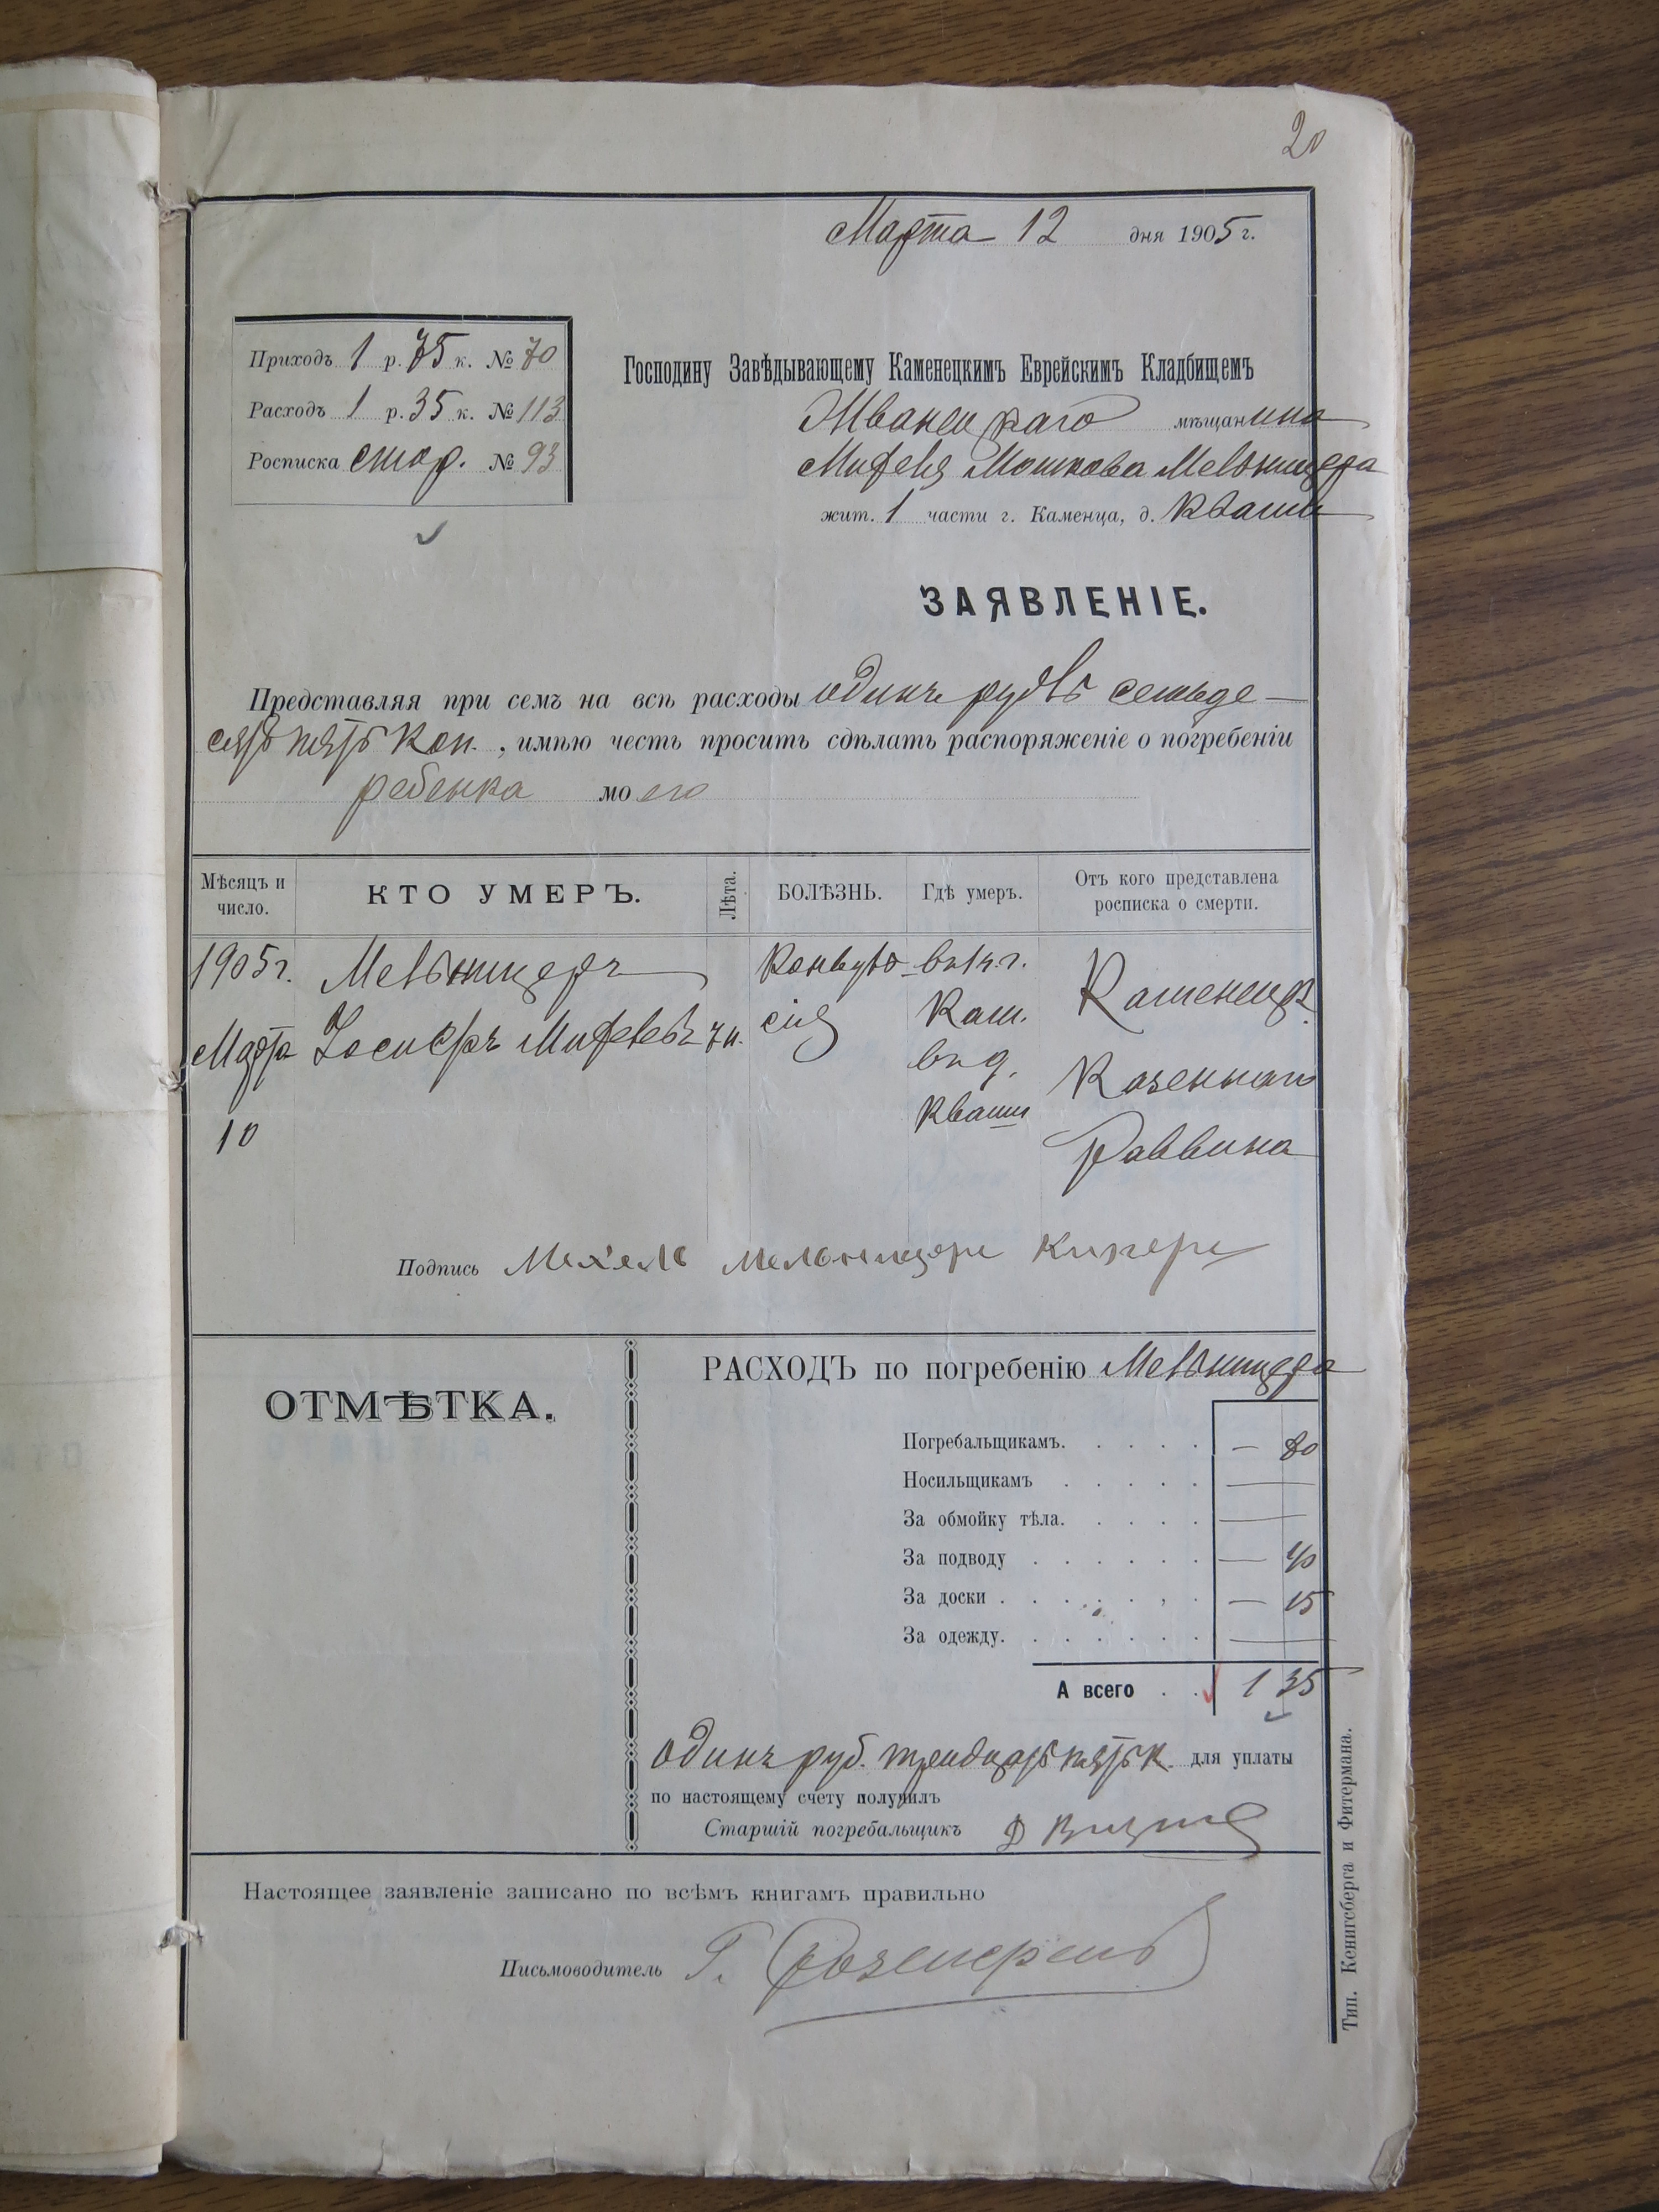 20
Марта 12 дня 1905 г.
Приходъ 1 р. 75 к. № 70
Расходъ 1 р. 35 к. № 113
Росписка стор. № 93
Господину Завѣдывающему Каменецкимъ Еврейскимъ Кладбищемъ
Жванецкаго мѣщанина
Мошкова Мельницера
жит. 1 части г. Каменца, д. Кваши
ЗАЯВЛЕНІЕ.
Представляя при семъ на всѣ расходы одинъ рубль семьде-
сятъ пять коп., имѣю честь просить сдѣлать распоряженіе о погребеніи
ребенка моего
Мѣсяцъ и число.
КТО УМЕРЪ.
Лѣта.
БОЛѢЗНЬ.
Гдѣ умеръ.
Отъ кого представлена росписка о смерти.
1905 г. Мельницеръ Конвуль- въ 1 ч. г. Каменецк.
Марта Іосифъ сія Кам. Казеннаго
10 въ д. Кваши Раввина
Подпись Мехель Мельницеръ
ОТМѢТКА.
РАСХОДЪ по погребенію Мельницера
Погребальщикамъ. . . . . — 80
Носильщикамъ . . . . . —
За обмойку тѣла. . . . . —
За подводу . . . . . . — 40
За доски . . . . . . — 15
За одежду. . . . . . . —
А всего . . 1 35
одинъ руб. тридцать пять к. для уплаты
по настоящему счету получилъ
Старшій погребальщикъ
Настоящее заявленіе записано по всѣмъ книгамъ правильно
Письмоводитель Г.
Тип. Кенигсберга и Фитермана.